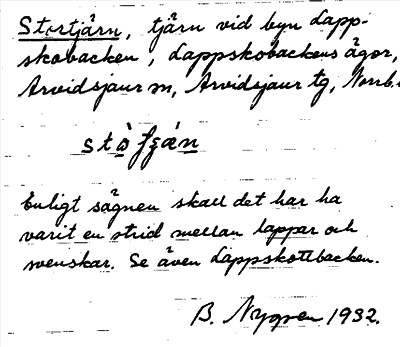 Stortjärn, tjärn vid byn Lapp-
skobacken, Lappskobackens ägor,
Arvidsjaur sn, Arvidsjaur tg, Norrb.
Enligt sägnen skall det här ha
varit en strid mellan lappar och
svenskar. Se även Lappskottbacken.
B. Nygren 1932.